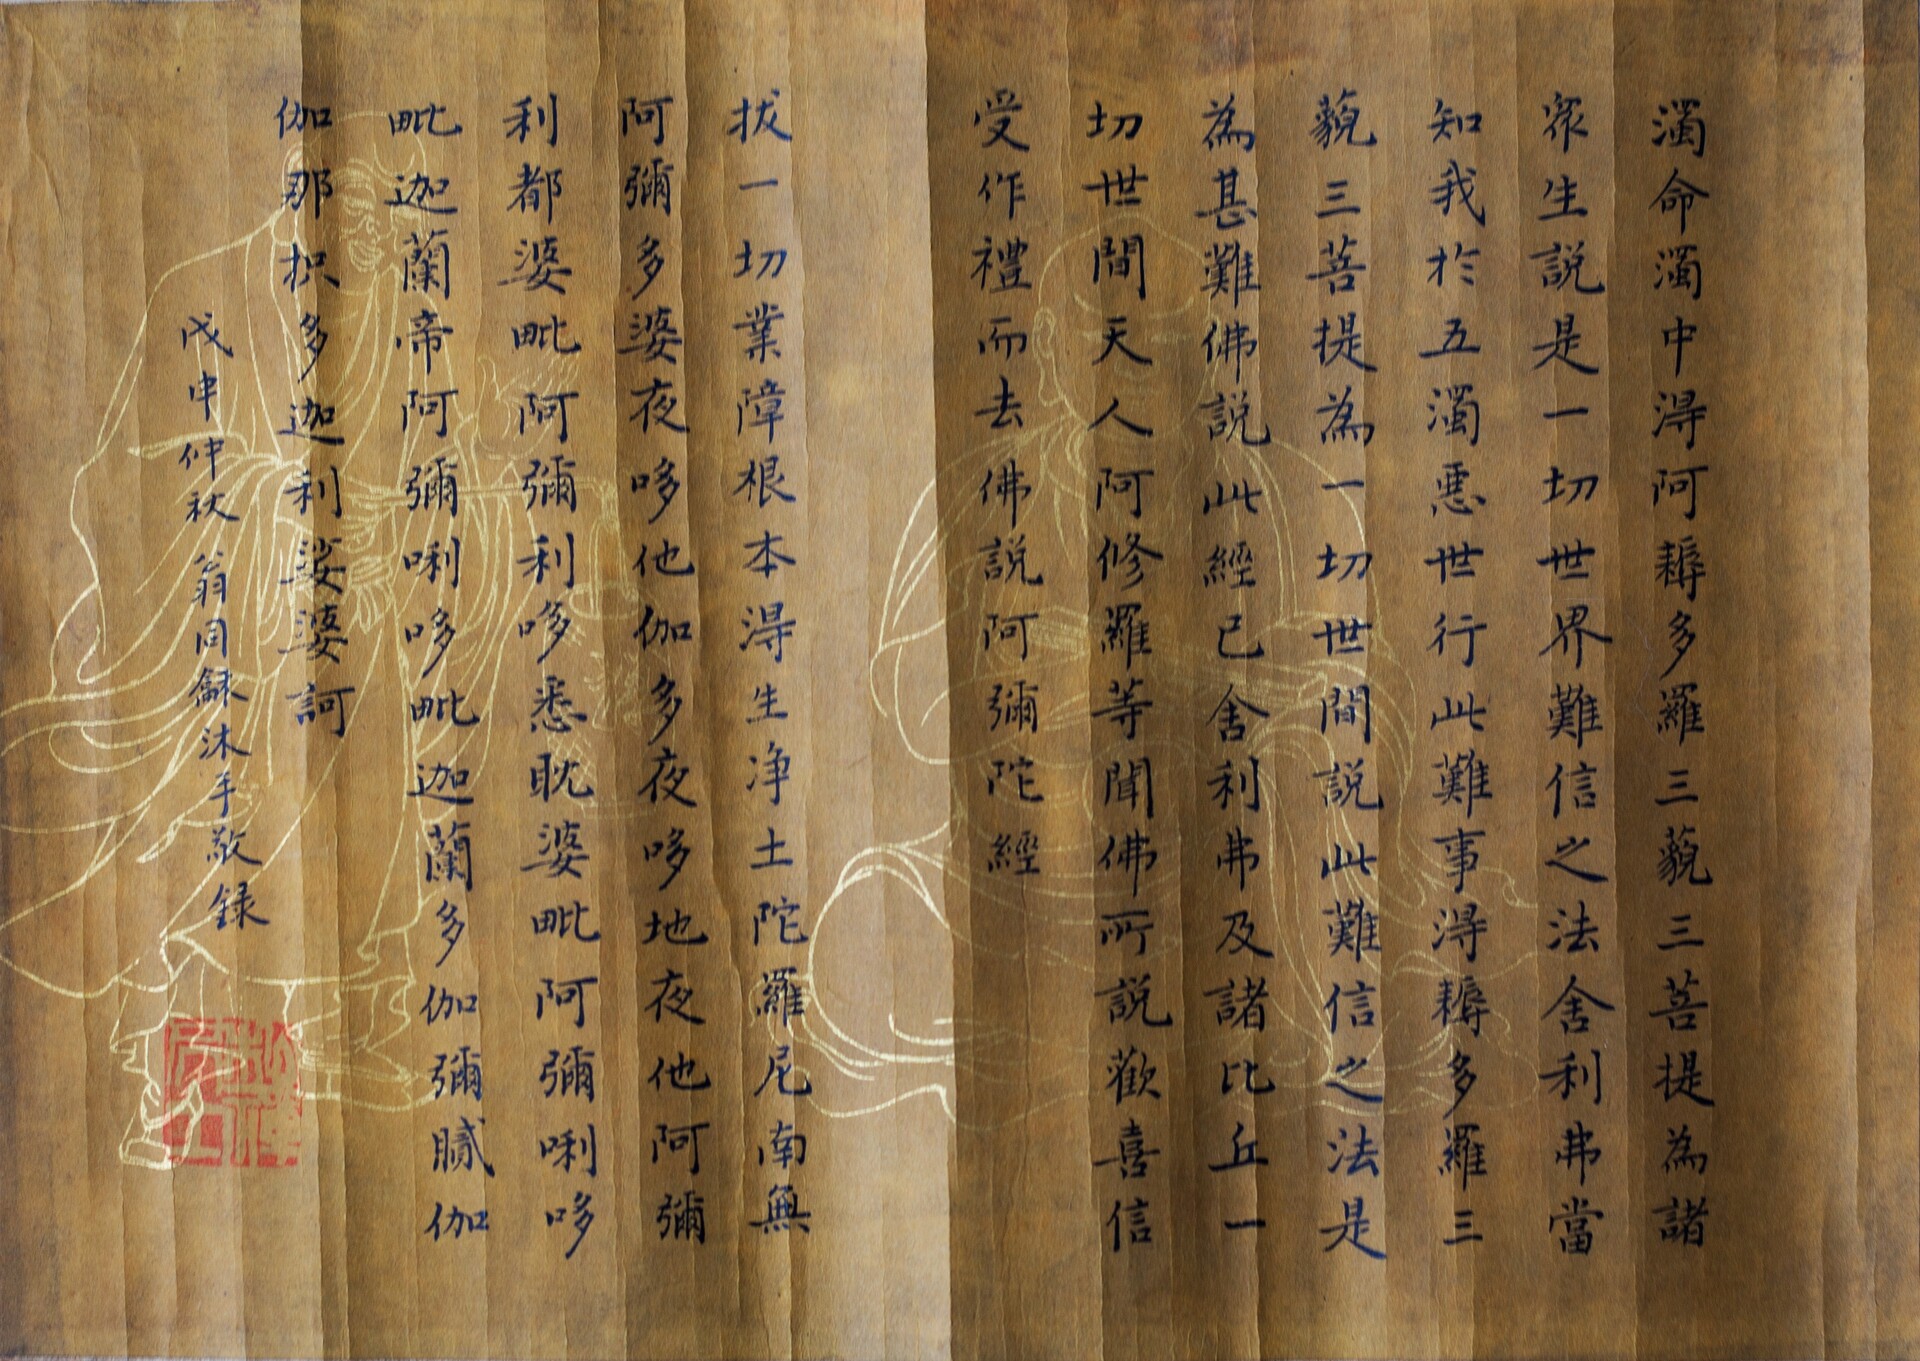 濁命濁中得阿耨多羅三藐三菩提為諸
眾生説是一切世界難信之法舍利弗當
知我於五濁惡世行此難事得耨多羅三
藐三菩提為一切世間説此難信之法是
為甚難佛説此經已舍利弗及諸比丘一
切世間天人阿修羅等聞佛所説歡喜信
受作禮而去佛説阿彌陀經
拔一切業障根本得生净土陀羅尼南無
阿彌多婆夜哆他伽多夜哆地夜他阿彌
利都婆毗阿彌利哆悉耽婆毗阿彌唎哆
毗迦蘭帝阿彌唎哆毗迦蘭多伽彌膩伽
伽那枳多迦利娑婆訶
戊申仲秋 翁同龢沐手敬録